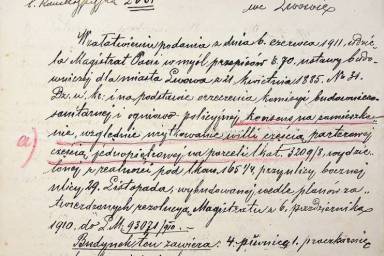 we Lwowie
W załatwieniu podania z dnia 6. czerwca 1911, udzie-
la Magistrat Panu w myśl przepisów §. 70. ustawy budo-
wniczej dla miasta Lwowa z 21. kwietnia 1885. Nr. 31.
Dz. u. kr. i na podstawie orzeczenia komisyi budowniczo
sanitarnej i ogniowo policyjnej, konsens na zamieszka-
nie, względnie użytkowanie willi częścią parterowej
a) częścią jednopiętrowej na parceli lkat. 3209/3, wydzie-
lonej z realności pod lkons. 165 4/4 przy ulicy, bocznej
ulicy 29. Listopada, wybudowanej wedle planów za-
twierdzonych rezolucyą Magistratu z 6. października
1910, do L.M. 93021/910.
Budynek ten zawiera: 4. piwnic, 1. przedsionek